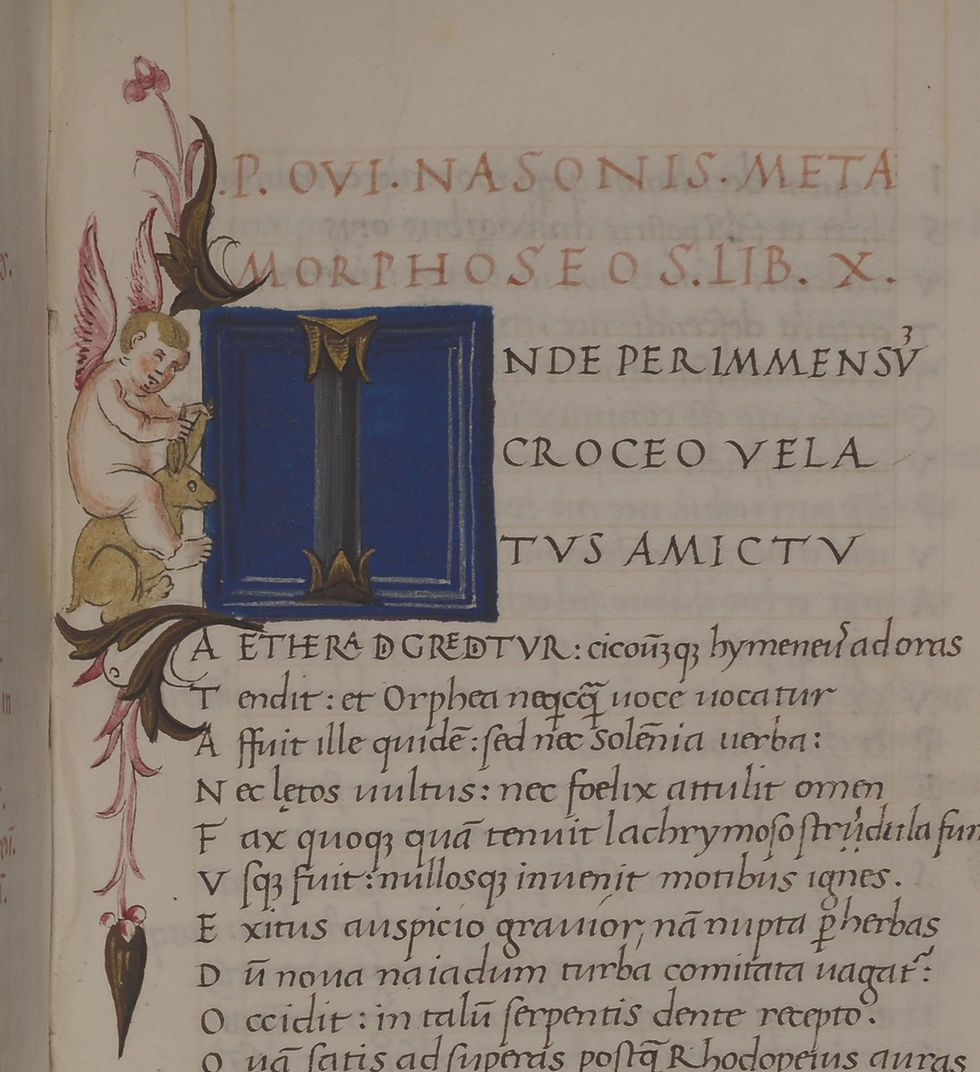 .P. OVI. NASONIS. META
MORPHOSEOS. LIB. X.
INDE PER IMMENSṼ
CROCEO VELA
TVS AMICTV
AETHERA DIGREDITVR: cicoũꝫqꝫ hymeneus ad oras
Tendit: et Orphea neqcq̃ uoce uocatur
Affuit ille quidẽ: sed nec Solẽnia uerba:
Nec lętos uultus: nec foelix attulit omen
Fax quoqꝫ quã tenuit lachrymoso stridula fum
Vsqꝫ fuit: nullosqꝫ inuenit motibus ignes.
Exitus auspicio grauior, nã nupta ꝑ herbas
Dũ noua naiadum turba comitata uagat᷒:
Occidit: in talũ serpentis dente recepto.
Quã satis ad superas postq̃ Rhodopeius auras